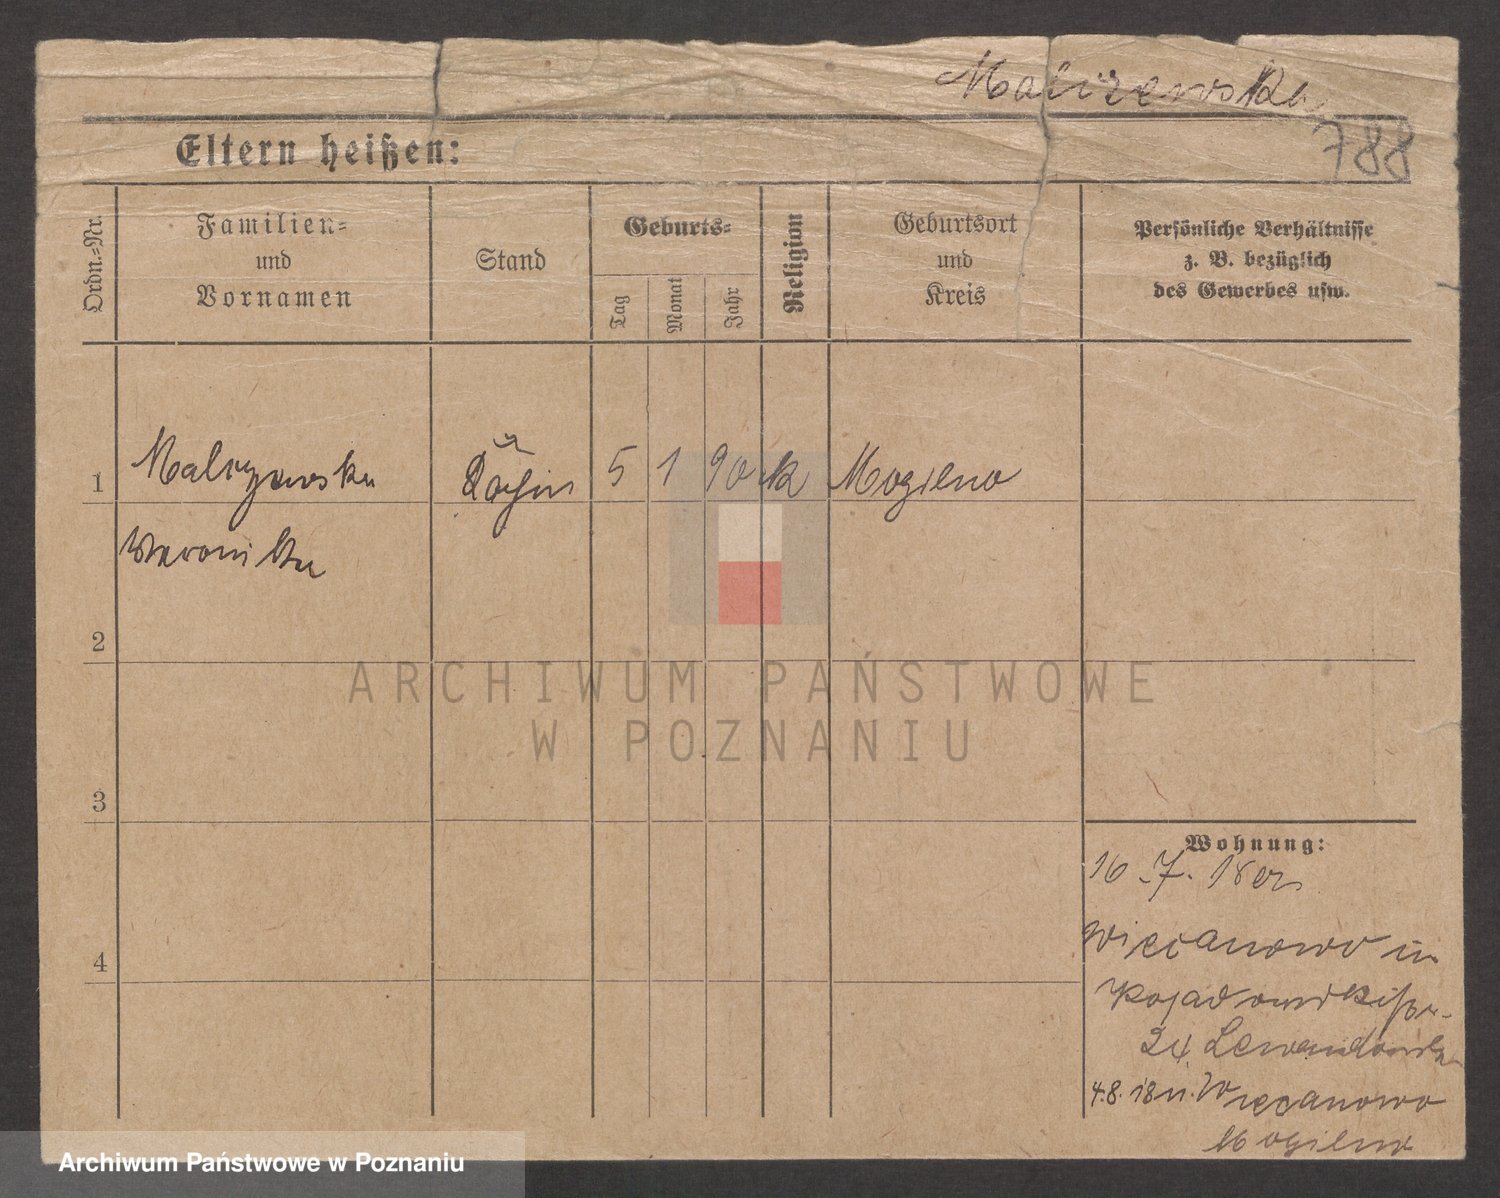 Maliczewska
788
Eltern heißen:
Ordn.-Nr.
Familien-
und
Vornamen
Stand
Geburts-
Tag
Monat
Jahr
Religion
Geburtsort
und
Kreis
Persönliche Verhältnisse
z. B. bezüglich
des Gewerbes usw.
1
Maliczewska
Köchin
5
1
90
k
Mogilno
Weronika
2
3
4
Wohnung:
16.7.18 von
Wiecanowo in
24 Lewandowska
4.8.18 n. Wiecanowo
Mogilno
ARCHIWUM PAŃSTWOWE
W POZNANIU
Archiwum Państwowe w Poznaniu